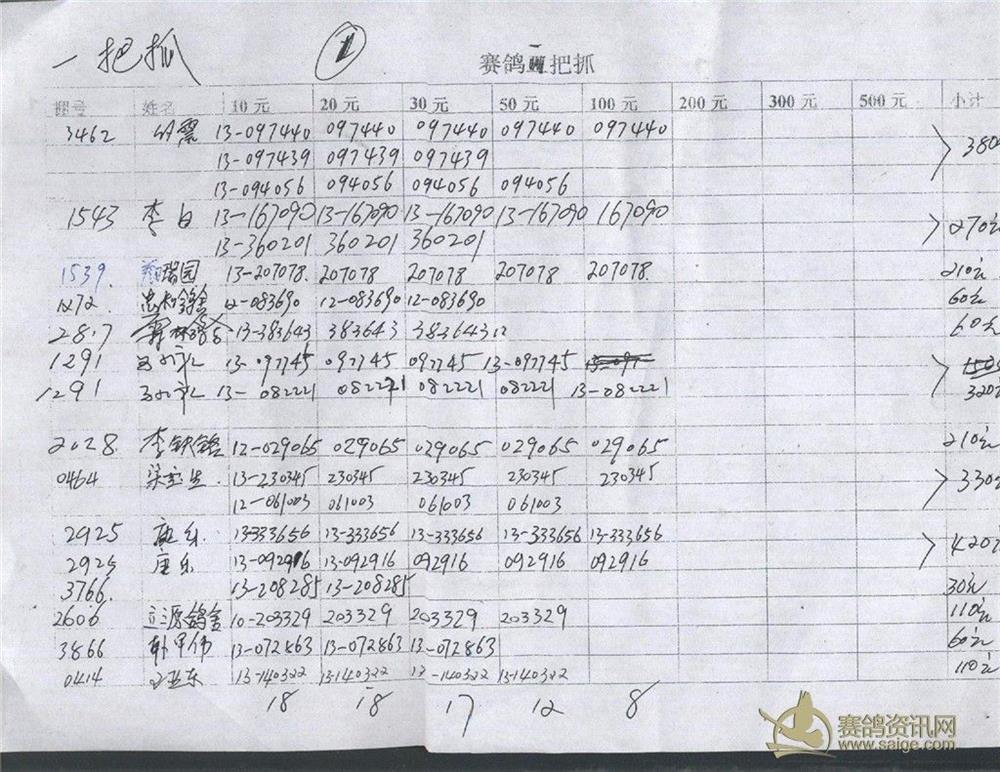 一把抓 1 赛鸽一把抓
棚号 姓名 10元 20元 30元 50元 100元 200元 300元 500元 小计
3462 13-097440 097440 097440 097440 097440
13-097439 097439 097439 380
13-094056 094056 094056 094056
1543 李白 13-167090 13-167090 13-167090 13-167090 167090
13-360201 360201 360201 270元
1539. 瑞园 13-207078. 207078 207078 207078 207078. 210元
1272. 12-083690 12-083690 12-083690 60元
2817 13-383643 383643 383643 60元
1291 13-097745 097745 097745 13-097745
1291 13-082221 082221 082221 082221 13-082221 320
2028. 李铁铭 12-029065 029065 029065 029065 029065 210元
0464 梁宝生 13-230345 230345 230345 230345 230345 330
12-061003 061003 061003 061003
2925 唐乐. 13-333656 13-333656 13-333656 13-333656 13-333656
2925 唐乐 13-092916 13-092916 092916 092916 092916 420
3766. 13-208285 13-208285 30元
2606 立源鸽舍 10-203329 203329 203329 203329 110元
3866 13-072863 13-072863 13-072863 60元
0414 13-140322 13-140322 13-140322 13-140322 110元
18 18 17 12 8
赛鸽资讯网
www.saige.com